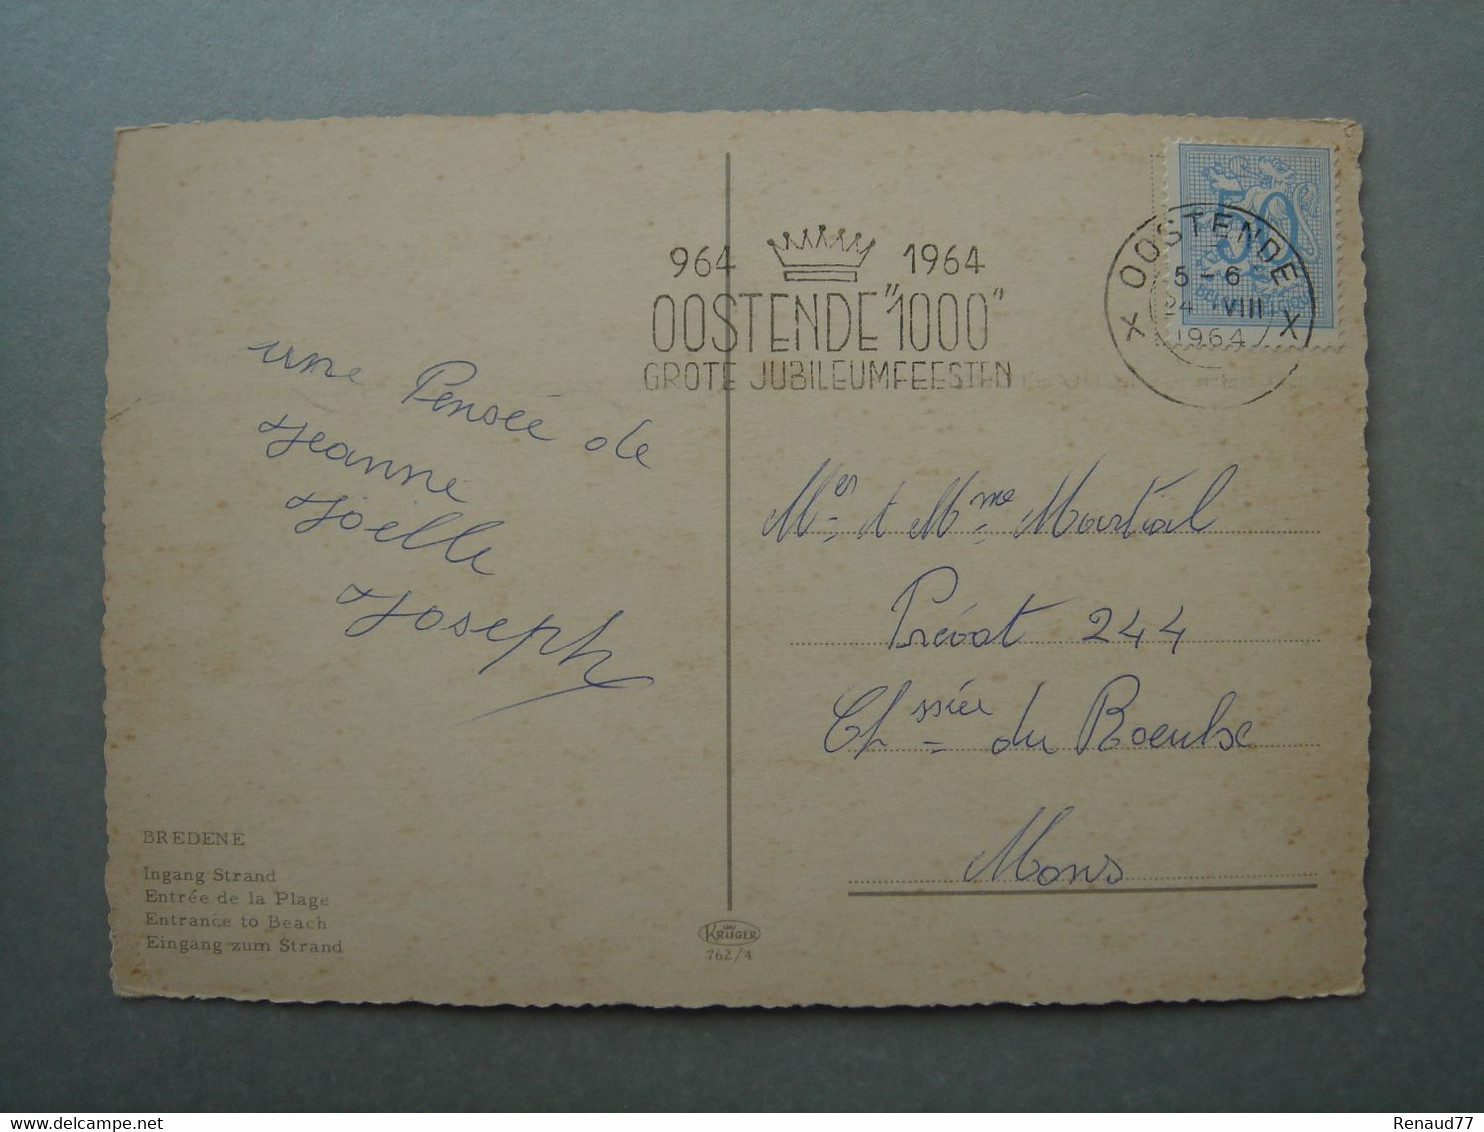 964 1964
OOSTENDE "1000"
GROTE JUBILEUMFEESTEN
X OOSTENDE X
5 - 6
24 VIII
1964
50
une Pensée de
Jeanne
Joëlle
Joseph
Mr & Mme Martial
Prévot 244
Chssée du Roeulx
Mons
BREDENE
Ingang Strand
Entrée de la Plage
Entrance to Beach
Eingang zum Strand
KRÜGER
762/4
Renaud77